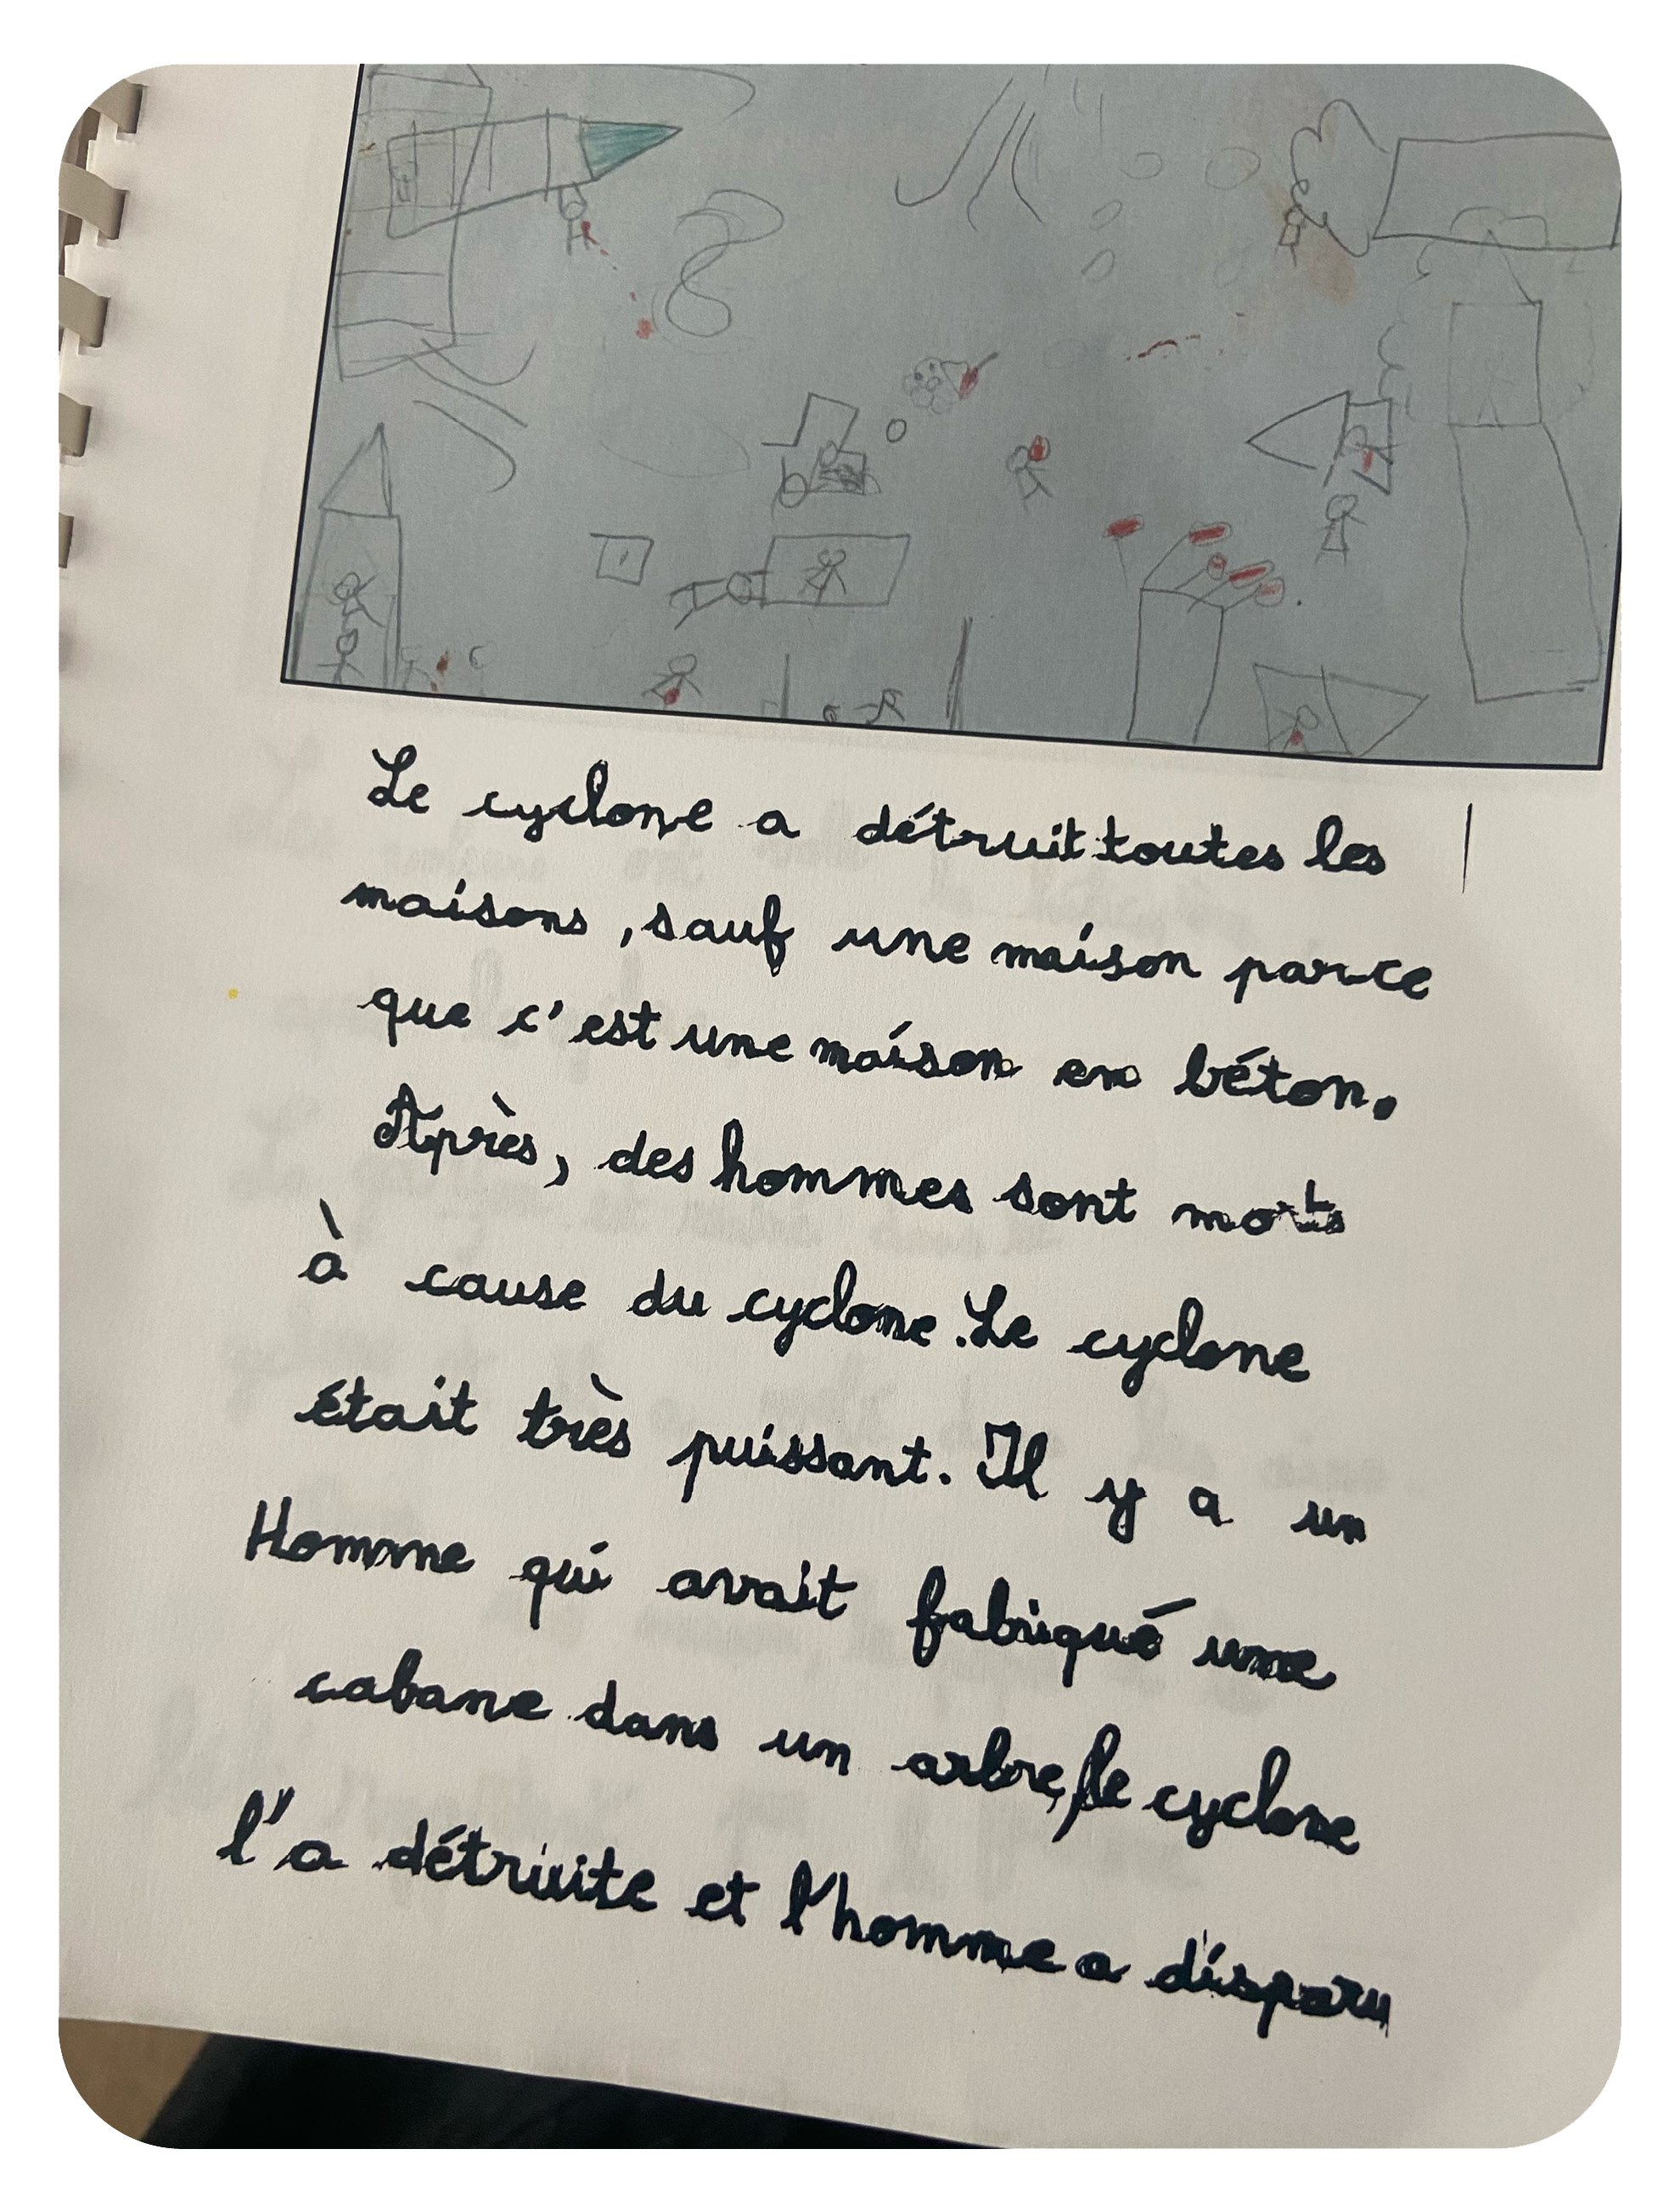 Le cyclone a détruit toutes les
maisons, sauf une maison parce
que c'est une maison en béton.
Après, des hommes sont morts
à cause du cyclone. Le cyclone
était très puissant. Il y a un
Homme qui avait fabriqué une
cabane dans un arbre, le cyclone
l'a détruite et l'homme a disparu